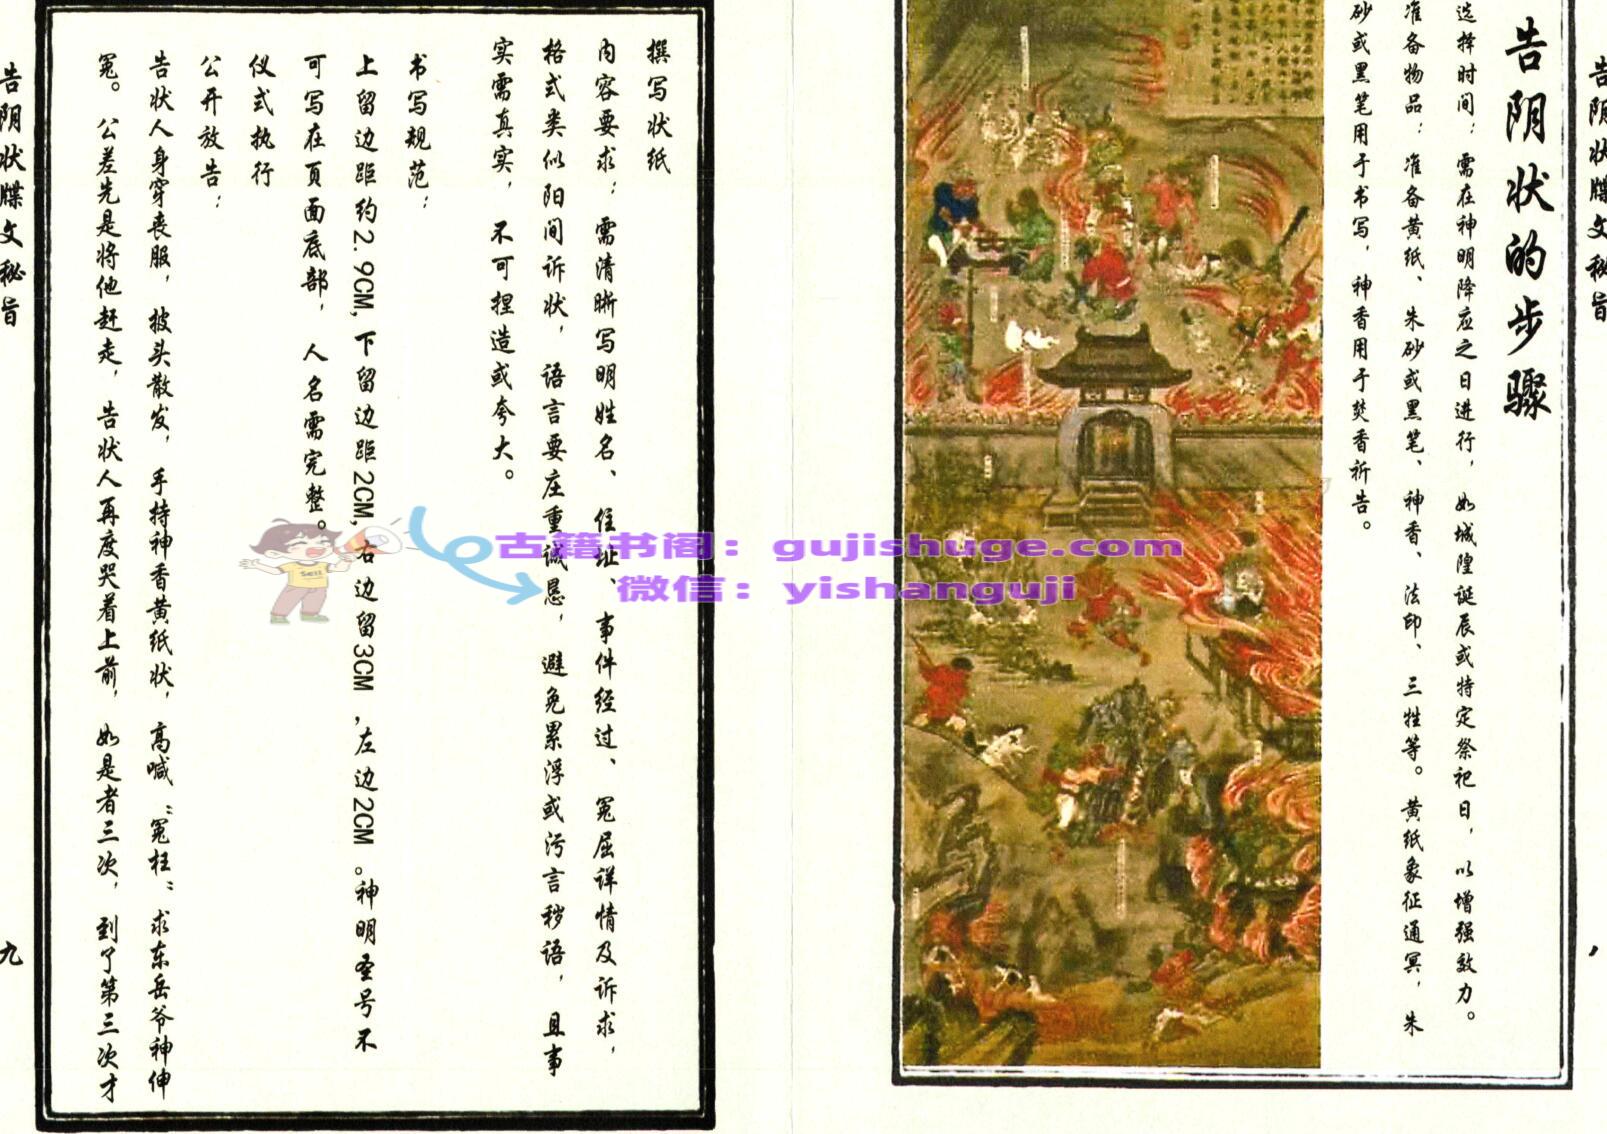 告阴状牒文秘旨
告阴状的步骤
选择时间：需在神明降应之日进行，如城隍诞辰或特定祭祀日，以增强效力。
准备物品：准备黄纸、朱砂或黑笔、神香、法印、三牲等。黄纸象征通冥，朱
砂或黑笔用于书写，神香用于焚香祈告。
撰写状纸
内容要求：需清晰写明姓名、住址、事件经过、冤屈详情及诉求，
格式类似阳间诉状，语言要庄重诚恳，避免累浮或污言秽语，且事
实需真实，不可捏造或夸大。
书写规范：
上留边距约2.9CM,下留边距2CM,右边留3CM,左边2CM。神明圣号不
可写在页面底部，人名需完整。
仪式执行
公开放告：
告状人身穿丧服，披头散发，手持神香黄纸状，高喊“冤枉”求东岳爷神伸
冤。公差先是将他赶走，告状人再度哭着上前，如是者三次，到了第三次才
告阴状牒文秘旨
九
古籍书阁：gujishuge.com
微信：yishanguji